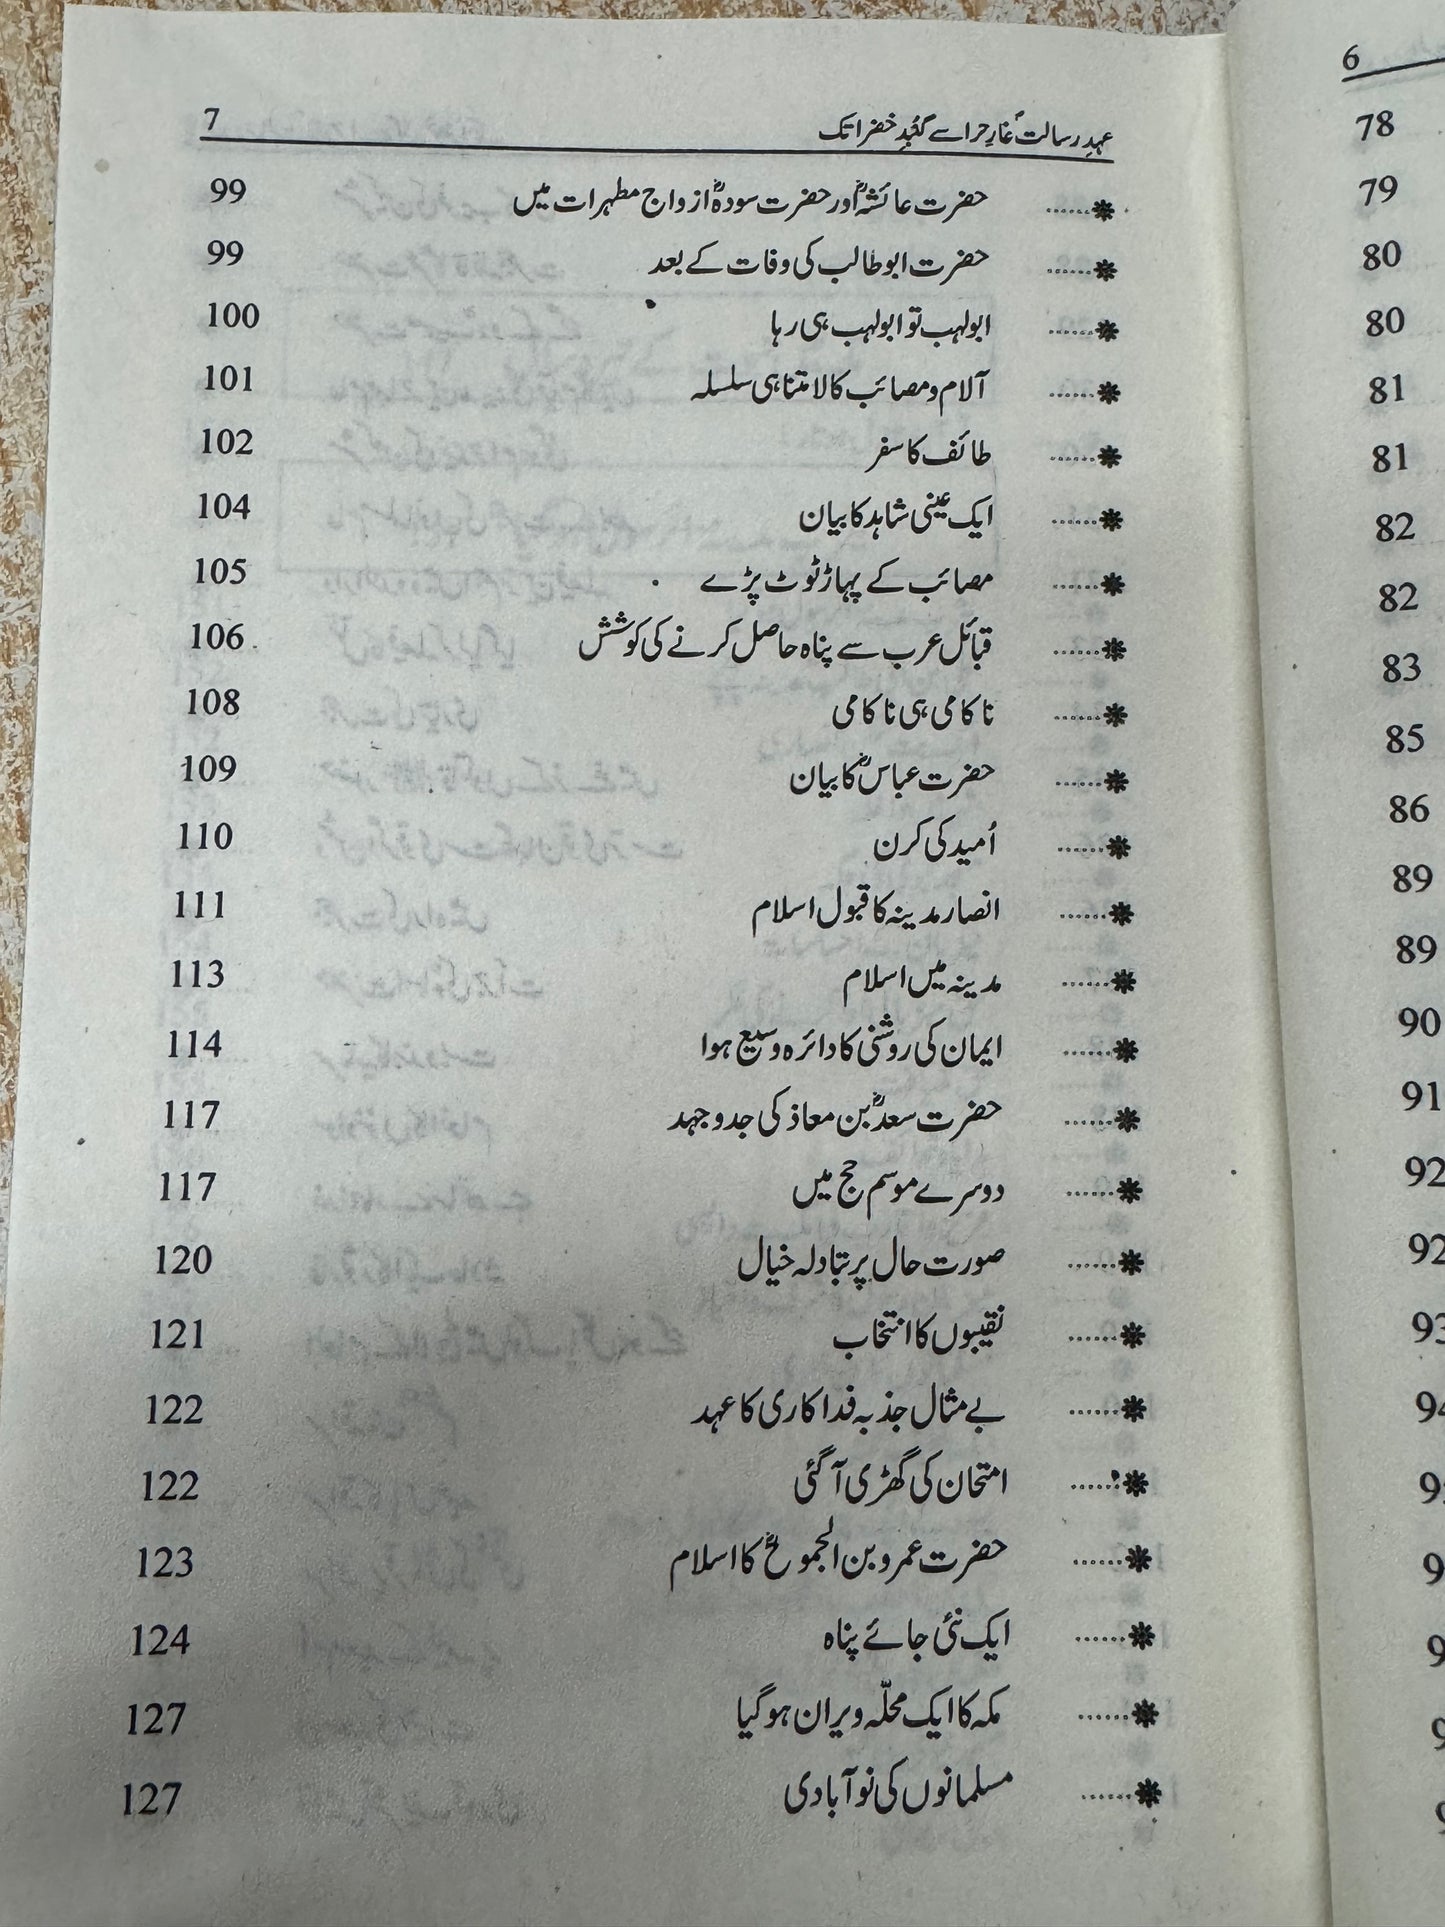 عہدِ رسالتؐ غارِ حرا سے گنبدِ خضرا تک 7
✹...... حضرت عائشہؓ اور حضرت سودہؓ ازواج مطہرات میں 99
✹...... حضرت ابوطالب کی وفات کے بعد 99
✹...... ابولہب تو ابولہب ہی رہا 100
✹...... آلام و مصائب کا لامتناہی سلسلہ 101
✹...... طائف کا سفر 102
✹...... ایک عینی شاہد کا بیان 104
✹...... مصائب کے پہاڑ ٹوٹ پڑے 105
✹...... قبائل عرب سے پناہ حاصل کرنے کی کوشش 106
✹...... ناکامی ہی ناکامی 108
✹...... حضرت عباسؓ کا بیان 109
✹...... اُمید کی کرن 110
✹...... انصار مدینہ کا قبول اسلام 111
✹...... مدینہ میں اسلام 113
✹...... ایمان کی روشنی کا دائرہ وسیع ہوا 114
✹...... حضرت سعدؓ بن معاذ کی جدوجہد 117
✹...... دوسرے موسم حج میں 117
✹...... صورت حال پر تبادلہ خیال 120
✹...... نقیبوں کا انتخاب 121
✹...... بے مثال جذبہ فداکاری کا عہد 122
✹...... امتحان کی گھڑی آ گئی 122
✹...... حضرت عمرو بن الجموحؓ کا اسلام 123
✹...... ایک نئی جائے پناہ 124
✹...... مکہ کا ایک محلّہ ویران ہو گیا 127
✹...... مسلمانوں کی نو آبادی 127
6
78
79
80
80
81
81
82
82
83
85
86
89
89
90
91
92
92
93